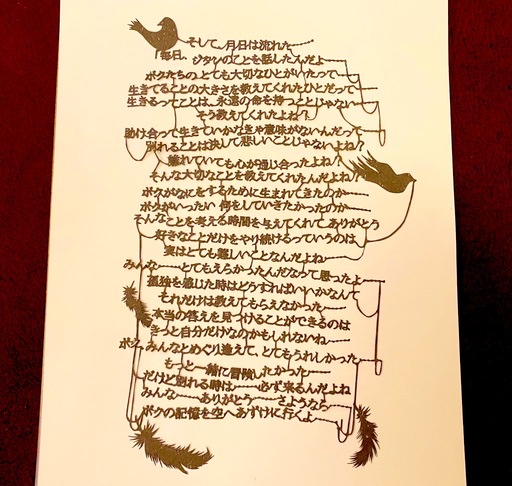 そして、月日は流れた……
「毎日、ジタンのことを話したんだよ……
ボクたちの、とても大切なひとがいたって……
生きてることの大きさを教えてくれたひとだって……
生きるってことは、永遠の命を持つことじゃない……
そう教えてくれたよね？
助け合って生きていかなきゃ意味がないんだって……
別れることは決して悲しいことじゃないよね？
離れていても心が通じ合ったよね？
そんな大切なことを教えてくれたんだよね？
ボクがなにをするために生まれてきたのか……
ボクがいったい何をしていきたかったのか……
そんなことを考える時間を与えてくれて、ありがとう
好きなことだけをやり続けるっていうのは
実はとても難しいことなんだよね……
みんな……とてもえらかったんだなって思ったよ……
孤独を感じた時はどうすればいいかなんて
それだけは教えてもらえなかった……
本当の答えを見つけることができるのは
きっと自分だけなのかもしれないね……
ボク、みんなとめぐり逢えて、とてもうれしかった……
もっと一緒に冒険したかった……
だけど別れる時は……必ず来るんだよね
みんな……ありがとう……さようなら……
ボクの記憶を空へあずけに行くよ……